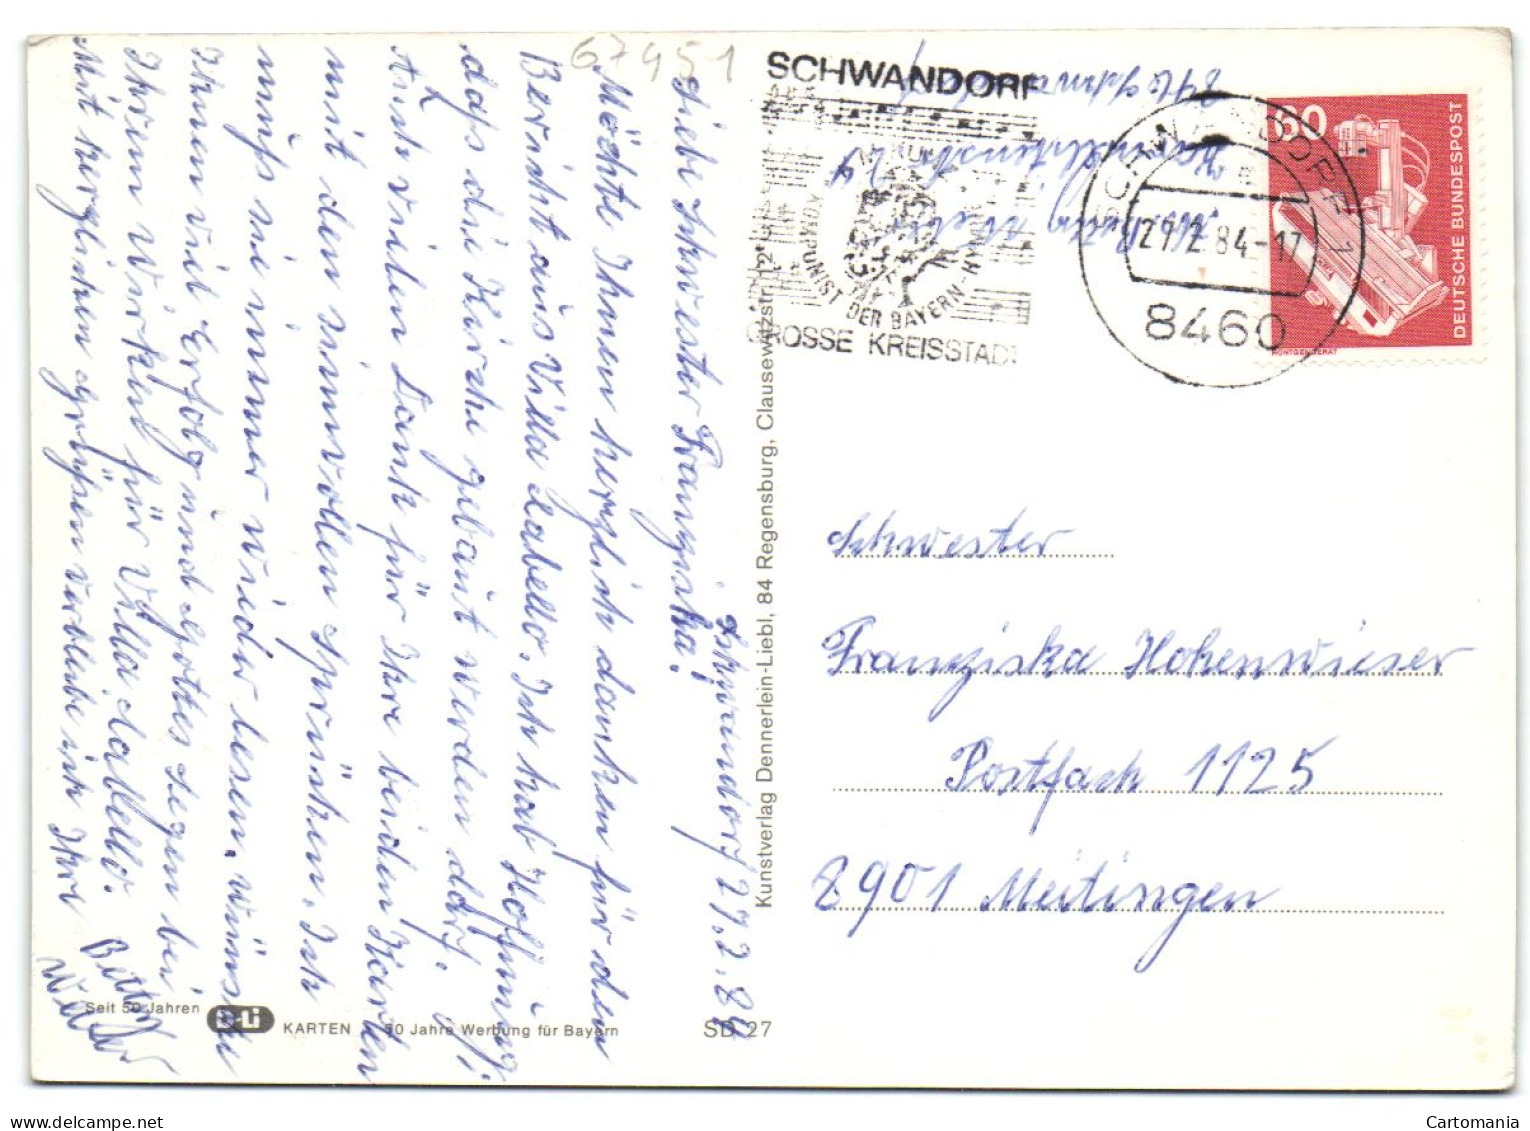 67451
Schwandorf 27.2.84
Liebe Schwester Franziska!
Möchte Ihnen herzlich danken für den
Bericht aus Villa Cabello. Ich hab Hoffnung
daß die Kirche gebaut werden darf.
Auch vielen Dank für Ihre beiden Karten
mit den sinnvollen Sprüchen. Ich
muß sie immer wieder lesen. wünsche
Ihnen viel Erfolg und Gottes Segen bei
Ihrem Wirken für Villa Cabello.
Mit herzlichen Grüßen verbleibe ich Ihre
SCHWANDORF
KOMPONIST DER BAYERN-HYMNE
GROSSE KREISSTADT
SCHWANDORF 1
29.2.84-17
8460
60
DEUTSCHE BUNDESPOST
RÖNTGENGERÄT
Schwester
Franziska Hohenwieser
Postfach 1125
8901 Meitingen
Kunstverlag Dennerlein-Liebl, 84 Regensburg, Clausewitzstr. 12
Seit 50 Jahren D-Li KARTEN 50 Jahre Werbung für Bayern
SD 27
Cartomania